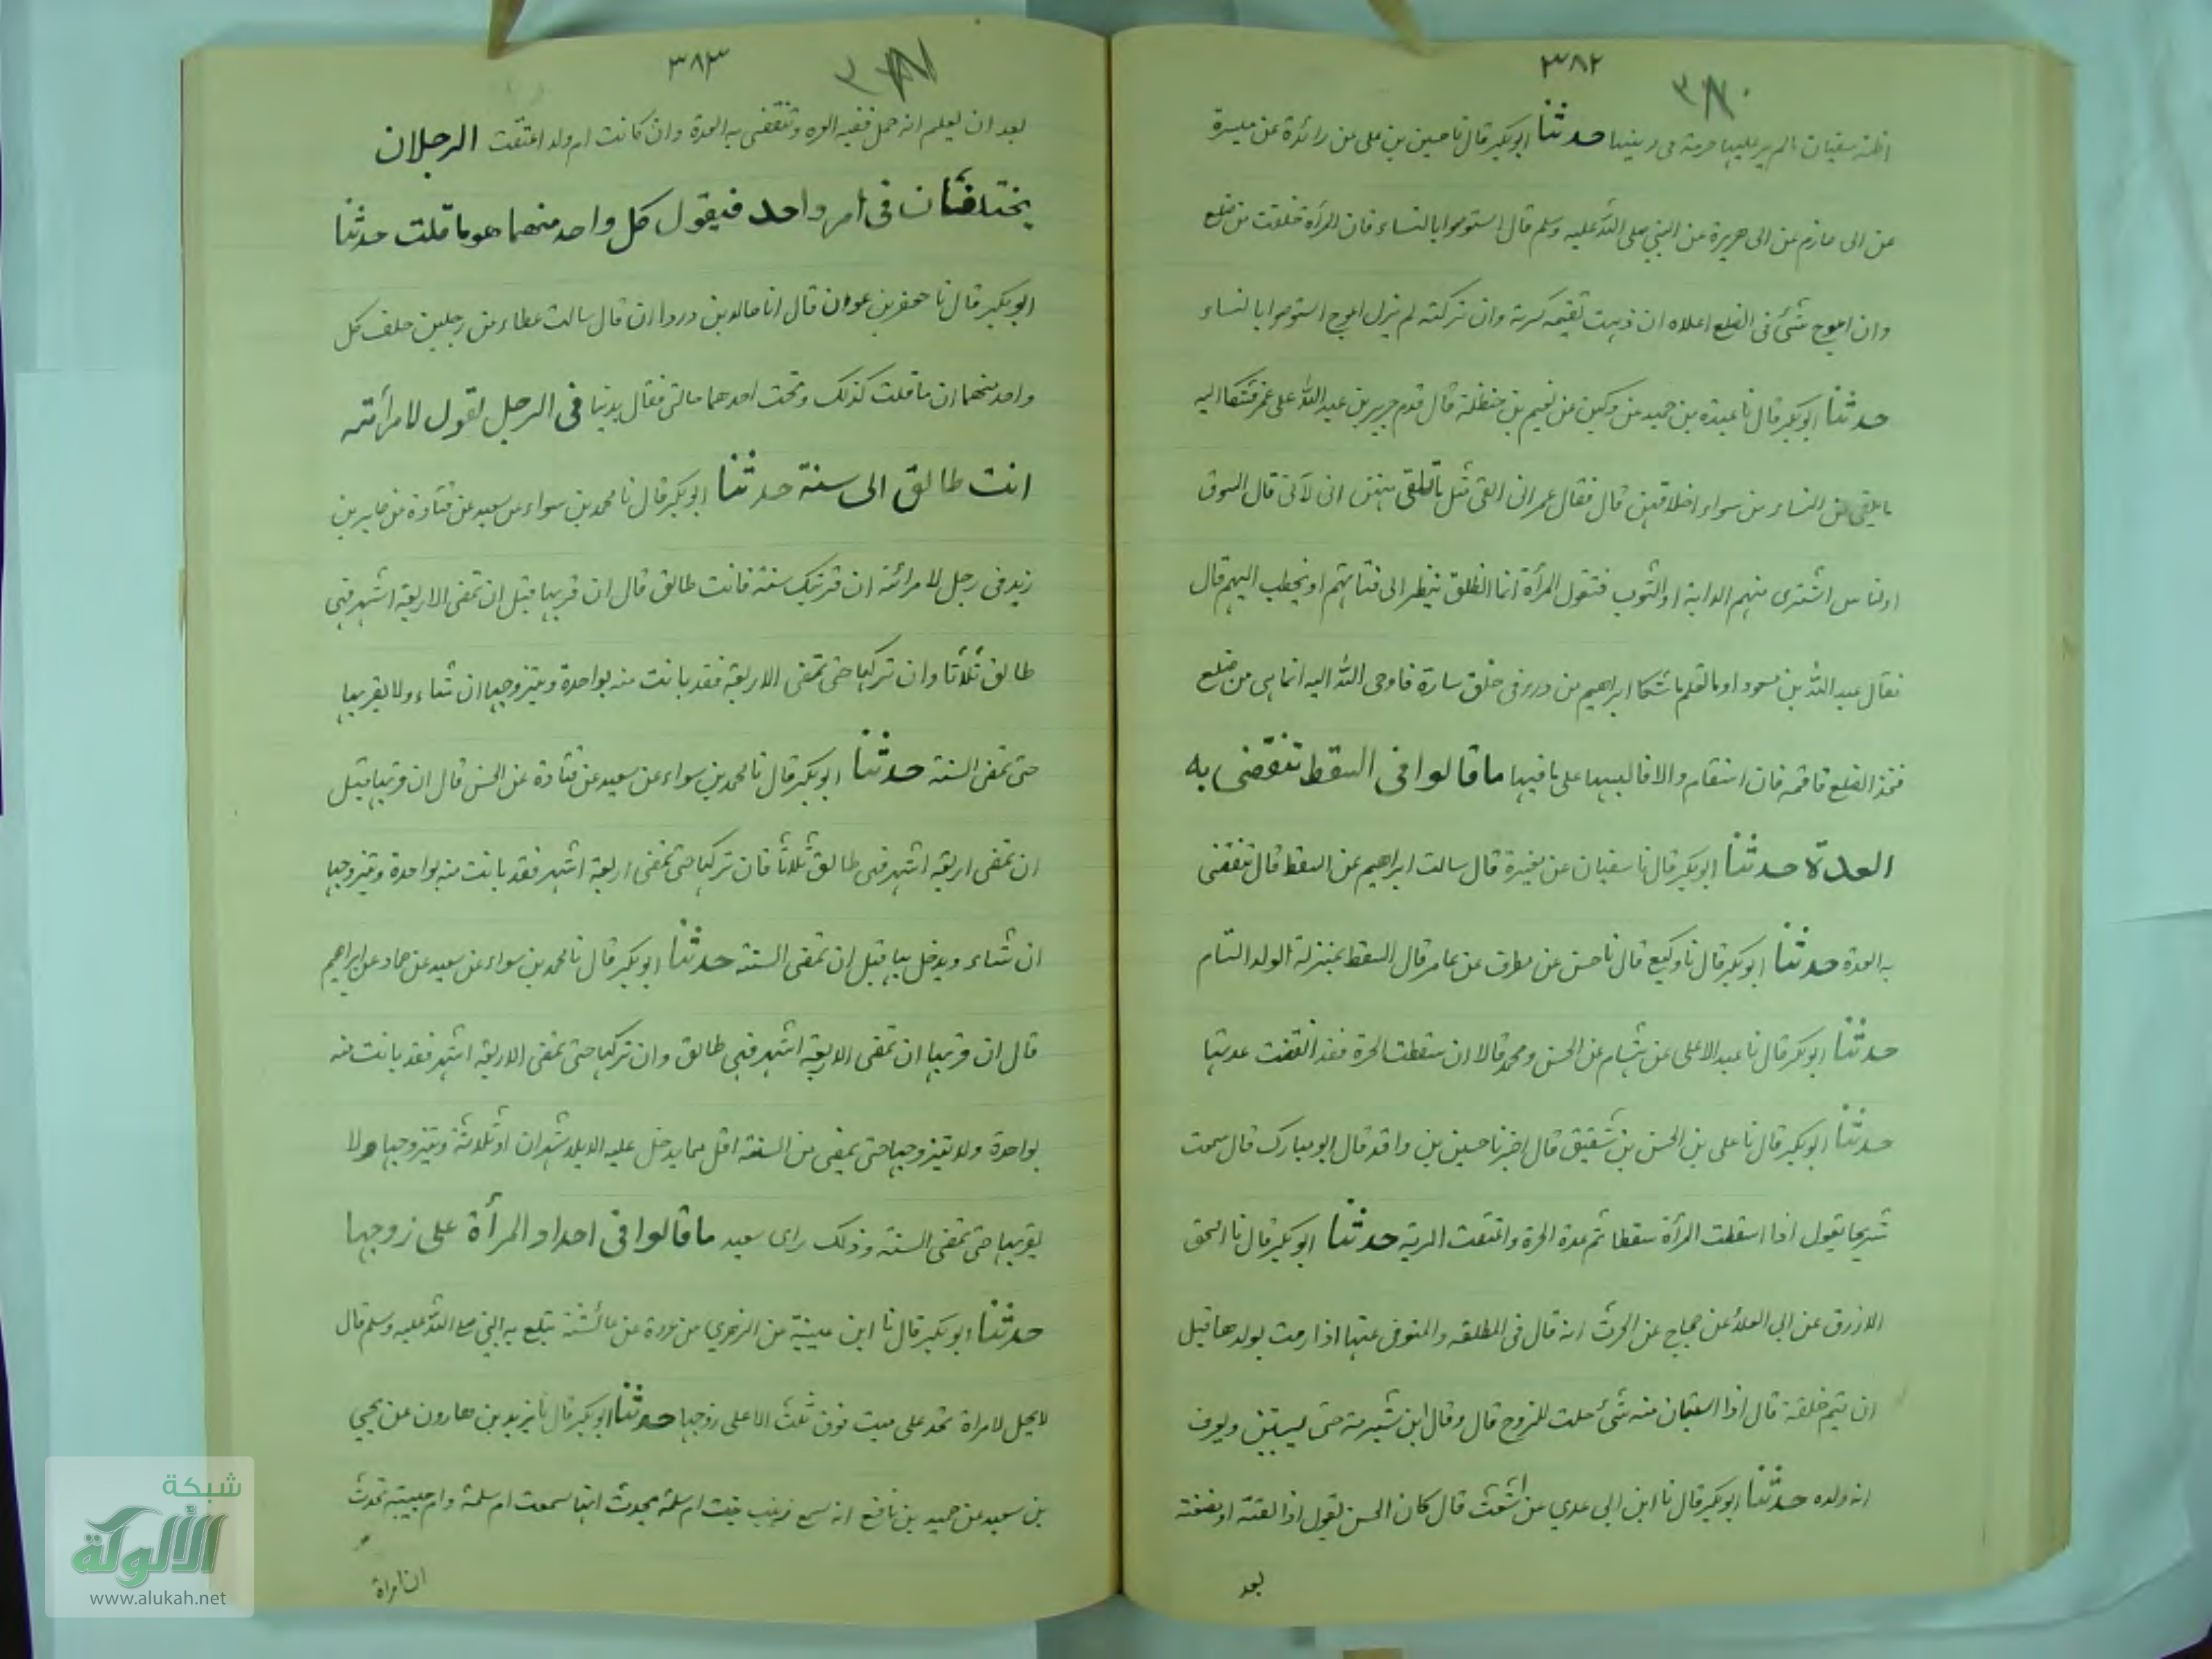 ٣٨٢
اظنه سفيان مالم ير عليها خربة في دينها حدثنا ابوبكر قال نا حسين بن على عن زائدة عن ميسرة
عن ابى حازم عن ابى هريرة عن النبي صلى الله عليه وسلم قال استوصوا بالنساء فان المرأة خلقت من ضلع
وان اعوج شئ فى الضلع اعلاه ان ذهبت تقيمه كسرته وان تركته لم يزل اعوج استوصوا بالنساء
حدثنا ابوبكر قال نا عبيدة بن حميد عن ركين عن نعيم بن حنظلة قال قدم جرير بن عبد الله على عمر فشكا اليه
ما يلقى من النساء من سواء اخلاقهن قال فقال عمر انى القى مثل ما تلقى منهن انى لآتى قال السوق
او الناس اشترى منهم الدابة او الثوب فتقول المرأة انما انطلق ينظر الى فتاتهم او يخطب اليهم قال
فقال عبد الله بن مسعود او ما تعلم ما شكا ابراهيم من درء فى خلق سارة فاوحى الله اليه انما هى من ضلع
فخذ الضلع فاقمه فان استقام والا فالبسها على ما فيها ما قالوا فى السقط تنقضى به
العدة حدثنا ابوبكر قال نا سفيان عن مغيرة قال سالت ابراهيم عن السقط قال تنقضى
به العدة حدثنا ابوبكر قال نا وكيع قال نا حسن عن مطرف عن عامر قال السقط بمنزلة الولد التام
حدثنا ابوبكر قال نا عبد الاعلى عن هشام عن الحسن ومحمد قالا ان سقطت الحرة فقد انقضت عدتها
حدثنا ابوبكر قال نا على بن الحسن بن شقيق قال اخبرنا حسين بن واقد قال ابو مبارك قال سمعت
شريحا يقول اذا اسقطت المرأة سقطا تم عدة الحرة واعتقت السرية حدثنا ابوبكر قال نا اسحق
الازرق عن ابى العلاء عن حماد عن الحرث انه قال فى المطلقة والمتوفى عنها اذا رمت بولدها قبل
ان يتم خلقه قال اذا استبان منه شئ حلت للزوج قال وقال ابن شبرمة حتى يستبين ويعرف
انه ولده حدثنا ابوبكر قال نا ابن ابى عدي عن اشعث قال كان الحسن يقول اذا القته او مضغة
بعد
٣٨٣
بعد ان يعلم انه حمل ففيه الغره وتنقضى به العدة وان كانت ام ولد اعتقت الرجلان
يختلفان فى امر واحد فيقول كل واحد منهما هو ما قلت حدثنا
ابوبكر قال نا جعفر بن عون قال انا خالد بن دردا ان قال سالت عطاء عن رجلين حلف كل
واحد منهما ان ما قلت كذلك وتحت احدهما خالتى فقال يدنيا فى الرجل يقول لامرأته
انت طالق الى سنة حدثنا ابوبكر قال نا محمد بن سواء عن سعيد عن قتادة عن جابر بن
زيد فى رجل لامرائه ان قربتك سنة فانت طالق قال ان قربها قبل ان تمضى الاربعة اشهر فهى
طالق ثلاثا وان تركها حتى تمضى الاربعة فقد بانت منه بواحدة ويتزوجها ان شاء ولا يقربها
حتى تمضى السنة حدثنا ابوبكر قال نا محمد بن سواء عن سعيد عن قتادة عن الحسن قال ان قربها قبل
ان تمضى اربعة اشهر فهى طالق ثلاثا فان تركها حتى تمضى اربعة اشهر فقد بانت منه بواحدة ويتزوجها
ان شاء ويدخل بها قبل ان تمضى السنة حدثنا ابوبكر قال نا محمد بن سواء عن سعيد عن حماد عن ابراهيم
قال ان قربها ان تمضى الاربعة اشهر فهى طالق وان تركها حتى تمضى الاربعة اشهر فقد بانت منه
بواحدة ولا يتزوجها حتى يمضى من السنة اقل مما يدخل عليه الايلاء شهران او ثلاثة ويتزوجها ولا
يقربها حتى تمضى السنة وذلك راى سعيد ما قالوا فى احداد المرأة على زوجها
حدثنا ابوبكر قال نا ابن عيينة عن الزهري عن عروة عن عائشة تبلغ به النبي صلى الله عليه وسلم قال
لا يحل لامراة تحد على ميت فوق ثلث الا على زوجها حدثنا ابوبكر قال نا يزيد بن هارون عن يحيى
بن سعيد عن حميد بن نافع انه سمع زينب بنت ام سلمة تحدث انها سمعت ام سلمة وام حبيبة تحدث
ان امراة
شبكة
الألوكة
www.alukah.net